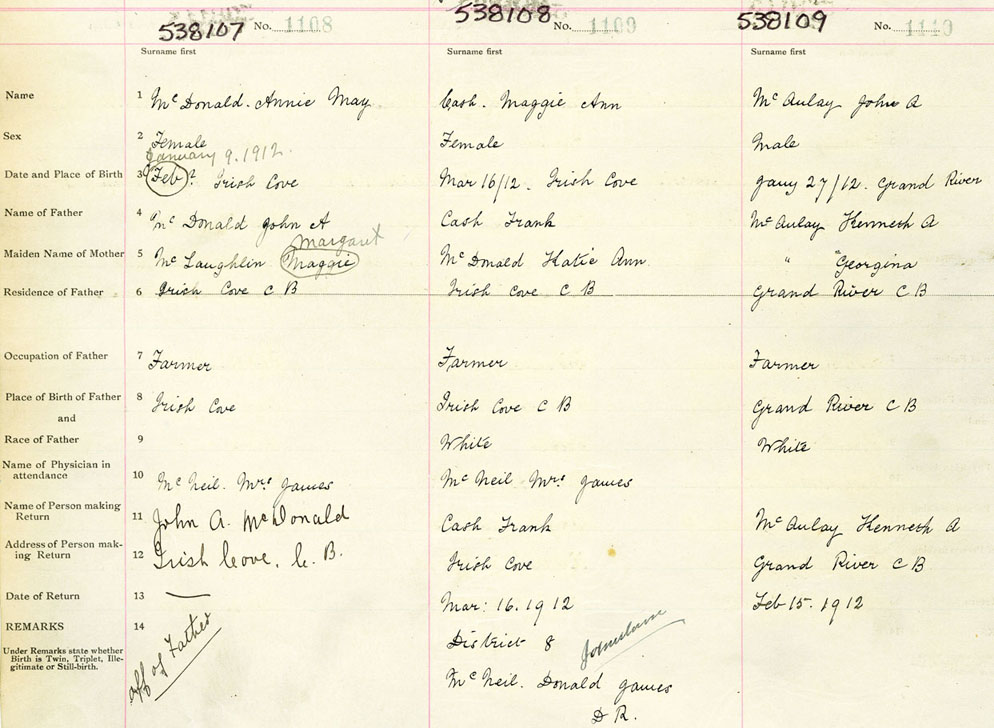 538107 No. 1108 538108 No. 1109 538109 No. 1110
Surname first Surname first Surname first
Name 1 McDonald. Annie May Cash. Maggie Ann McAulay John A
Sex 2 Female Female Male
January 9.1912.
Date and Place of Birth 3 Feb? Irish Cove Mar 16/12. Irish Cove Jany 27/12. Grand River
Name of Father 4 McDonald John A Cash Frank McAulay Kenneth A
Margaret
Maiden Name of Mother 5 McLaughlin Maggie McDonald Katie Ann " Georgina
Residence of Father 6 Irish Cove C B Irish Cove C B Grand River C B
Occupation of Father 7 Farmer Farmer Farmer
Place of Birth of Father 8 Irish Cove Irish Cove C B Grand River C B
and
Race of Father 9 White White
Name of Physician in
attendance 10 McNeil. Mrs James McNeil Mrs James
Name of Person making
Return 11 John A. McDonald Cash Frank McAulay Kenneth A
Address of Person mak-
ing Return 12 Irish Cove, C. B. Irish Cove Grand River C B
Date of Return 13 — Mar: 16.1912 Feb 15.1912
REMARKS 14 District 8
Under Remarks state whether
Birth is Twin, Triplet, Ille-
gitimate or Still-birth.
aff of Father
McNeil. Donald James
D R.